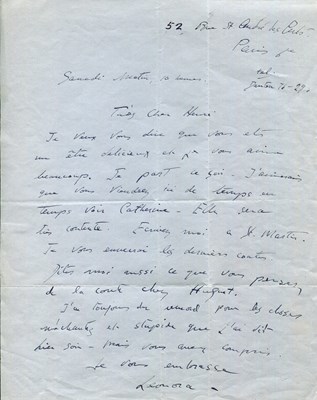 52 Rue St André des Arts
Paris 6e
Samedi
Très cher Henri
Je veux vous dire que vous êtes
un être délicieux et je vous aime
beaucoup. Je pars ce soir - J'aimerais
que vous de temps en
temps voir Catherine - Elle sera
très contente Ecrivez moi à St. Martin
Je vous enverrai les derniers contes
Dites moi aussi ce que vous pensez
de la conte chez Huguet.
J'ai toujours du remord pour les choses
méchantes et stupides que j'ai dit
hier soir - Mais vous avez compris
Je vous embrasse
Leonora -